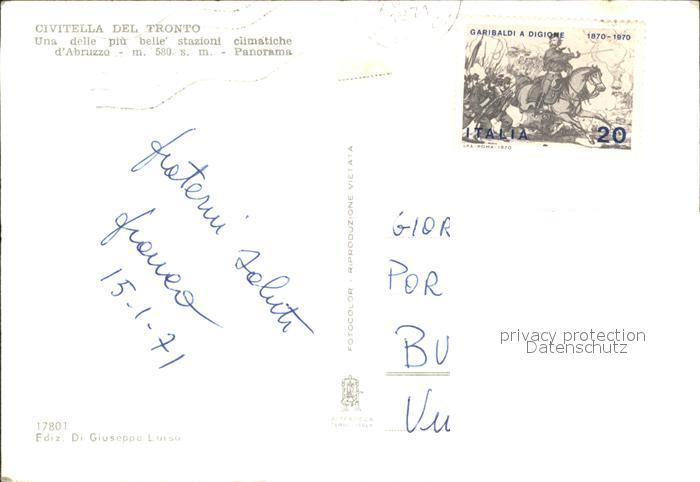 CIVITELLA DEL TRONTO
Una delle più belle stazioni climatiche
d'Abruzzo - m. 580 s. m. - Panorama
GARIBALDI A DIGIONE 1870-1970
ITALIA 20
I.P.S.-ROMA-1970
fraterni saluti
franco
15-1-71
FOTOCOLOR - RIPRODUZIONE VIETATA
GIOR
POR
BU
Vu
privacy protection
Datenschutz
17801
Ediz. Di Giuseppe